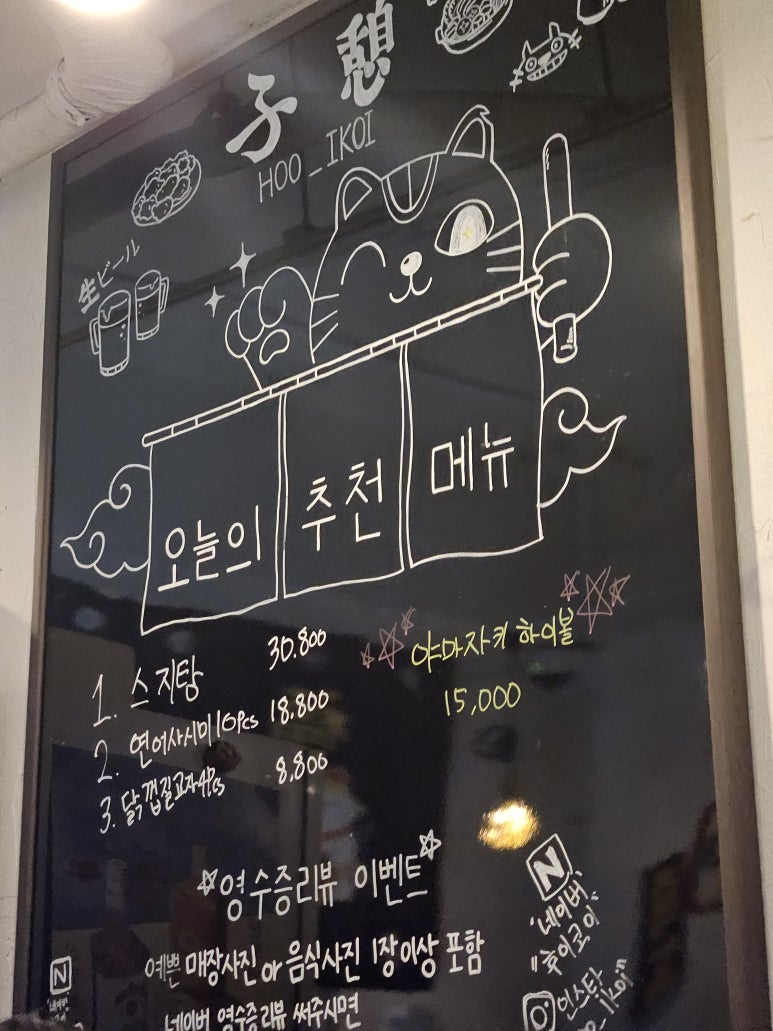 子 憩
HOO_IKOI
生ビール
오늘의 추천 메뉴
1. 스지탕 30.800
2. 연어사시미 10pcs 18.800
3. 닭껍질교자 4Pcs 8.800
야마자키 하이볼
15,000
영수증리뷰 이벤트
예쁜 매장사진 or 음식사진 1장이상 포함
네이버 영수증리뷰 써주시면
N
"네이버
후이코이"
인스타
N